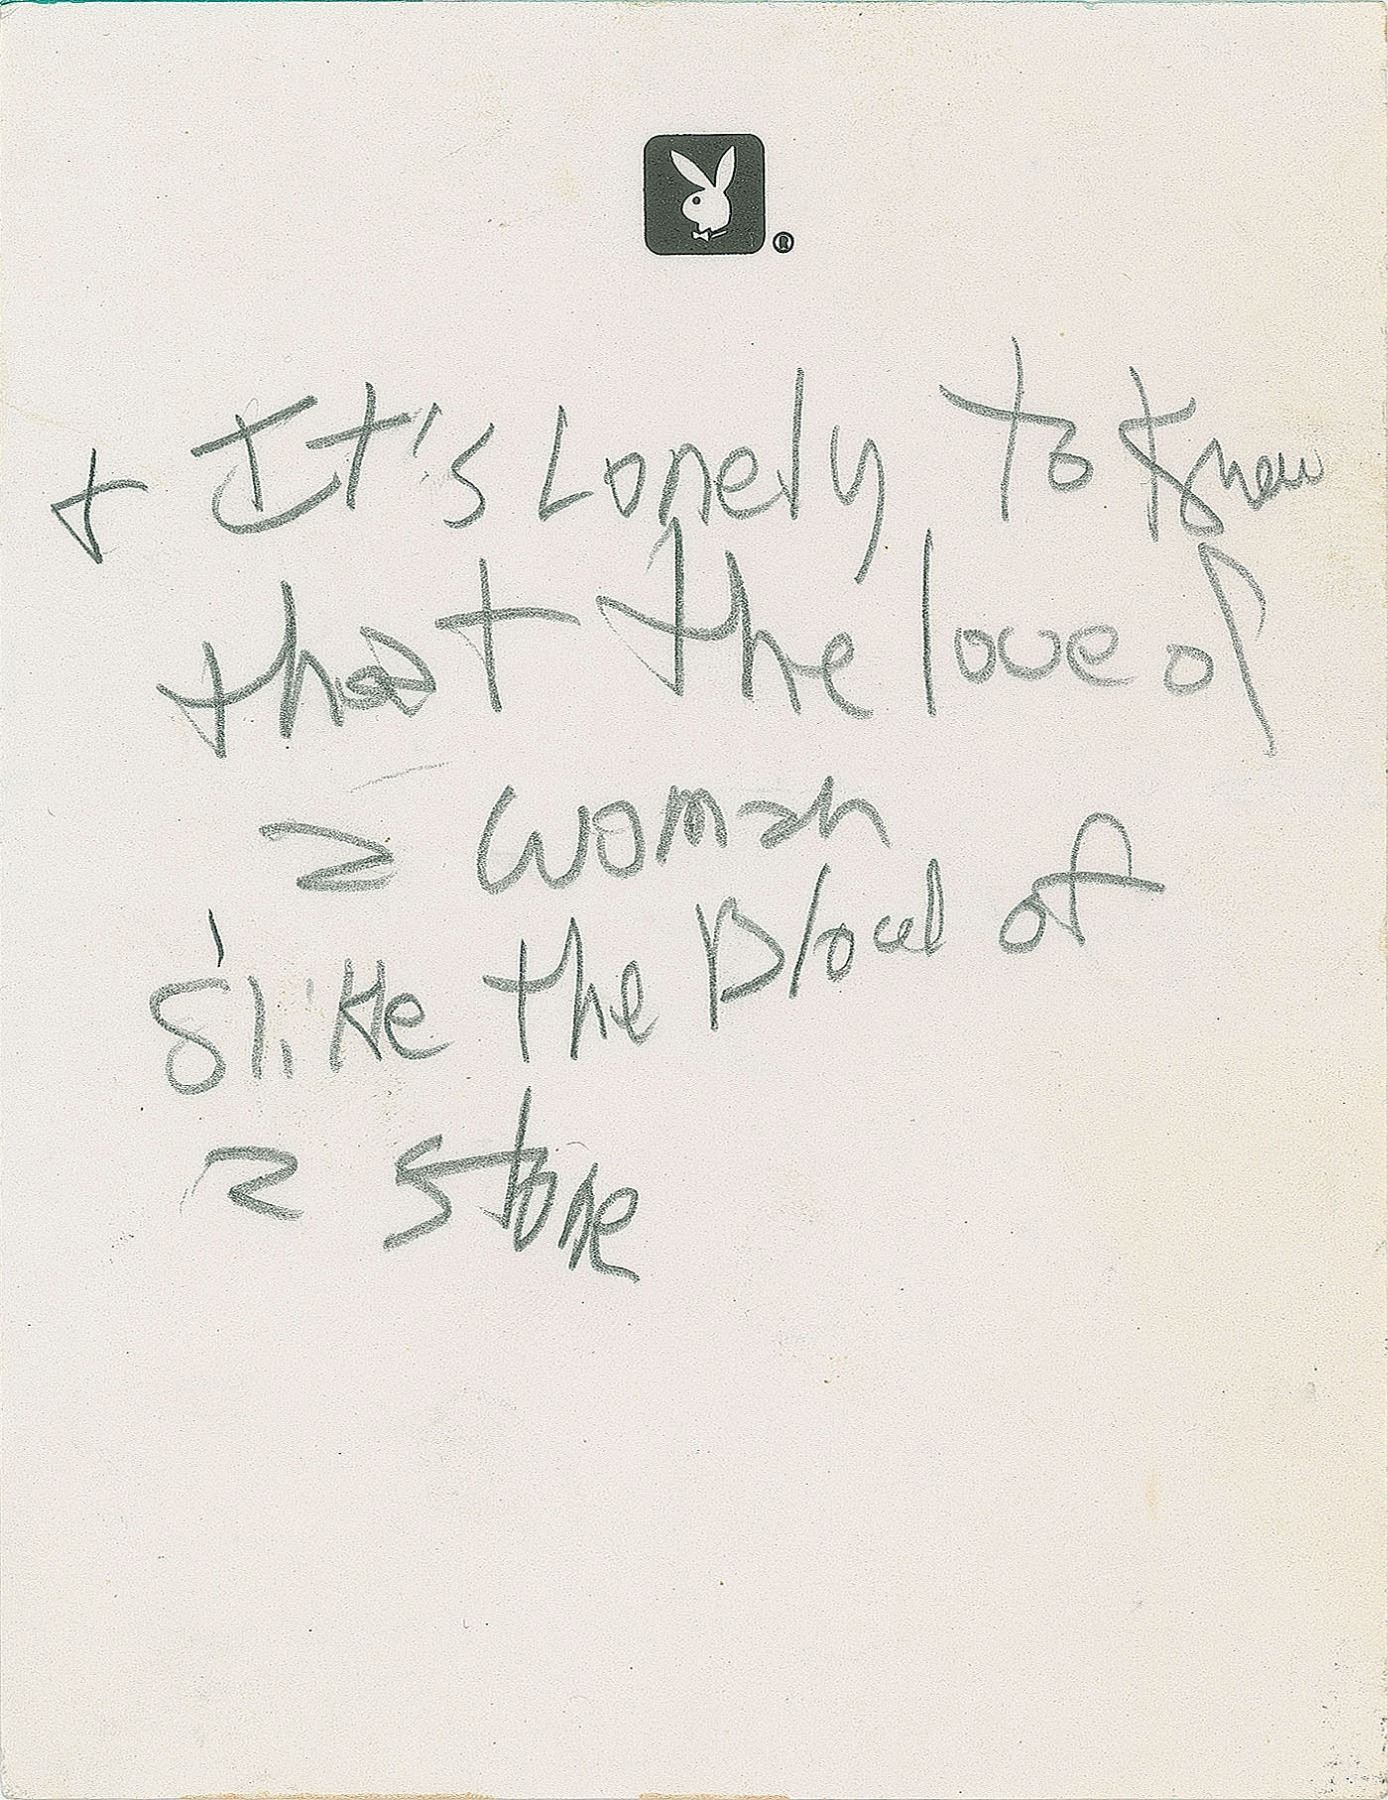 ®
+ It's Lonely to Know
that the love of
a woman
's like the Blood of
a stone